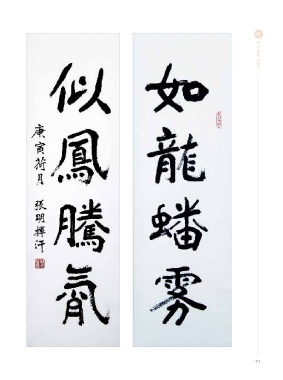 如龍蟠霧
似鳳騰霄
庚寅荷月 張明輝汗
71